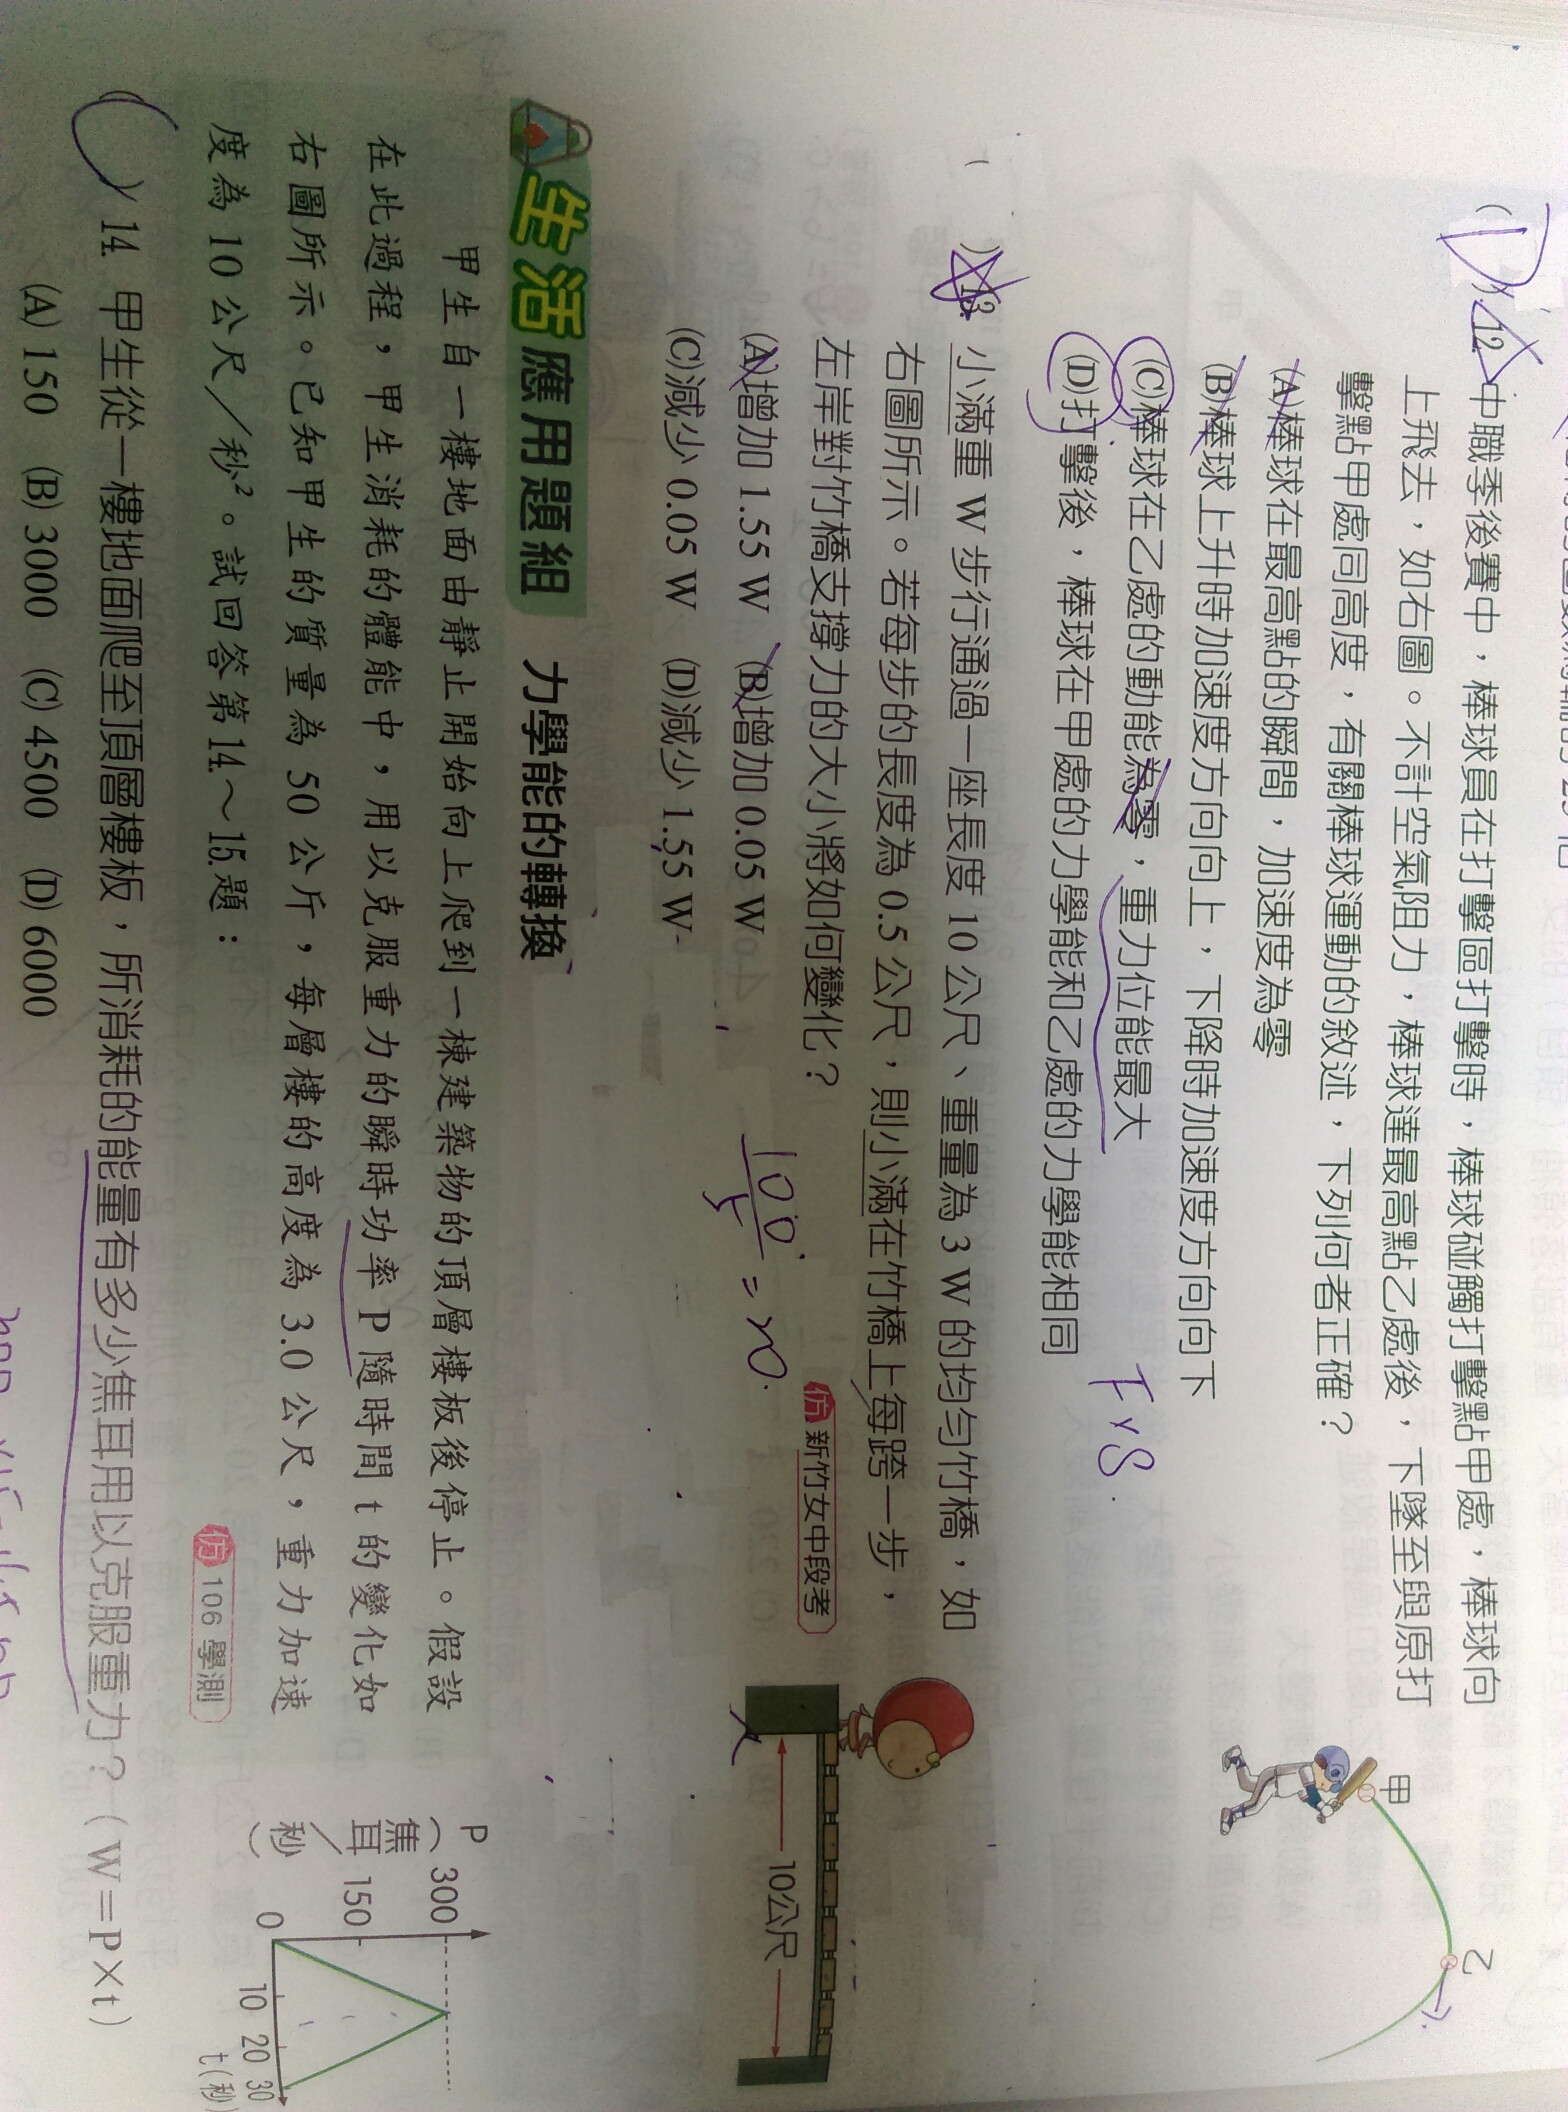 ( D ) 12. 中職季後賽中，棒球員在打擊區打擊時，棒球碰觸打擊點甲處，棒球向
上飛去，如右圖。不計空氣阻力，棒球達最高點乙處後，下墜至與原打
擊點甲處同高度，有關棒球運動的敘述，下列何者正確？
(A)棒球在最高點的瞬間，加速度為零
(B)棒球上升時加速度方向向上，下降時加速度方向向下
(C)棒球在乙處的動能為零，重力位能最大
(D)打擊後，棒球在甲處的力學能和乙處的力學能相同
F×S
甲
乙
( ) 13. 小滿重 W 步行通過一座長度 10 公尺、重量為 3 W 的均勻竹橋，如
右圖所示。若每步的長度為 0.5 公尺，則小滿在竹橋上每跨一步，
左岸對竹橋支撐力的大小將如何變化？
仿 新竹女中段考
(A)增加 1.55 W (B)增加 0.05 W
(C)減少 0.05 W (D)減少 1.55 W
10公尺
生活應用題組 力學能的轉換
甲生自一樓地面由靜止開始向上爬到一棟建築物的頂層樓板後停止。假設
在此過程，甲生消耗的體能中，用以克服重力的瞬時功率 P 隨時間 t 的變化如
右圖所示。已知甲生的質量為 50 公斤，每層樓的高度為 3.0 公尺，重力加速
度為 10 公尺／秒²。試回答第 14.～15.題：
仿 106 學測
P（焦耳/秒）
300
150
0
10 20 30
t(秒)
( ) 14. 甲生從一樓地面爬至頂層樓板，所消耗的能量有多少焦耳用以克服重力？（W＝P×t）
(A) 150 (B) 3000 (C) 4500 (D) 6000